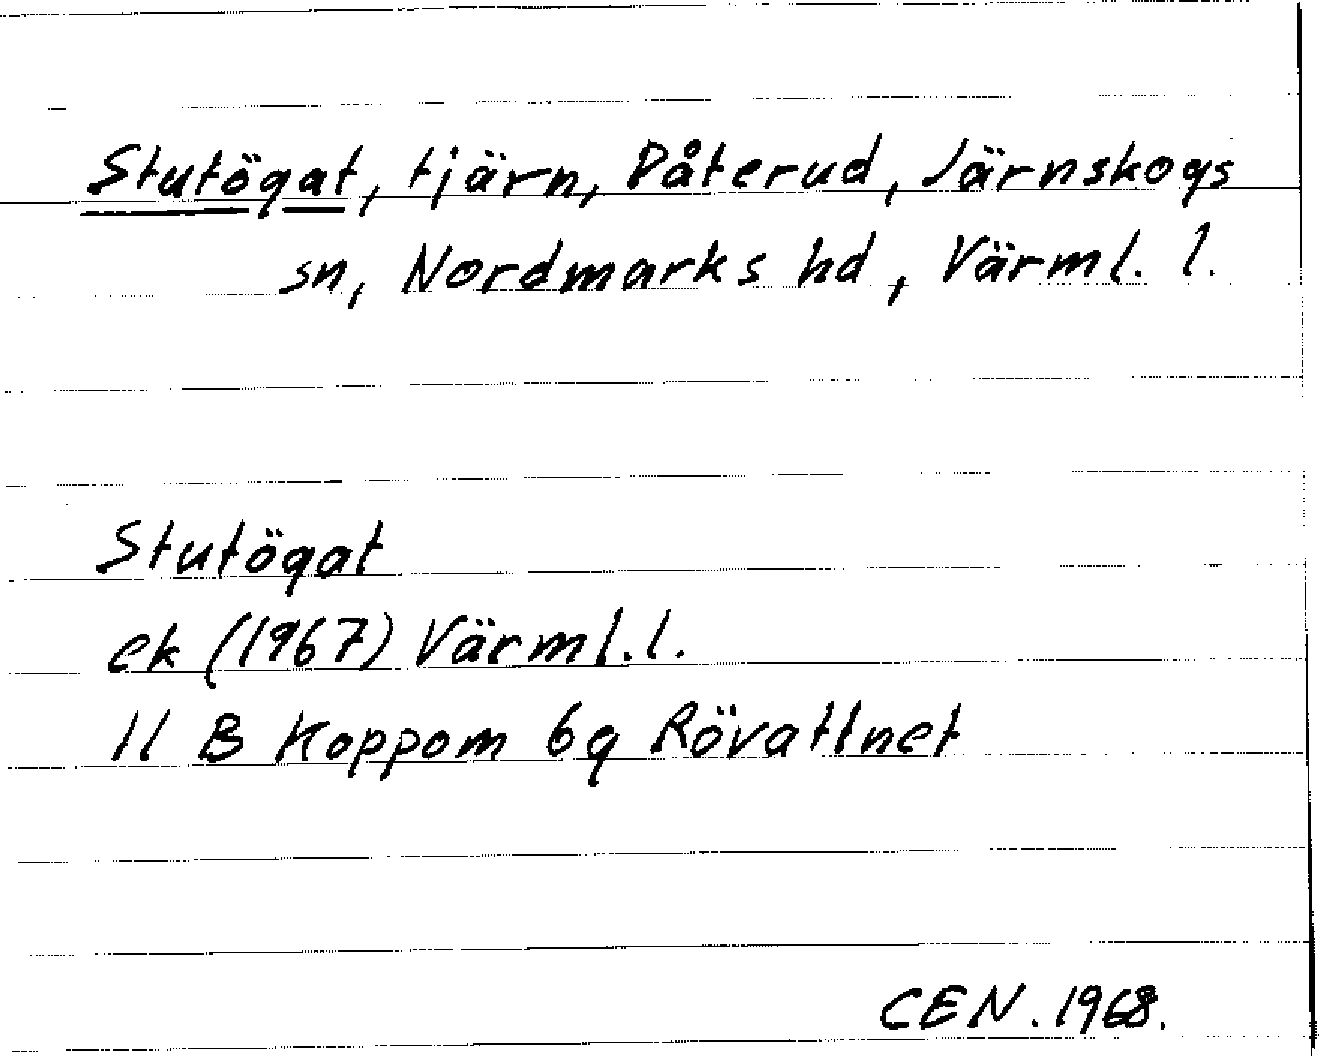 Stutögat, tjärn, Påterud, Järnskogs
sn, Nordmarks hd, Värml. l.
Stutögat
ek (1967) Värml. l.
11 B Koppom 6g Rövattnet
CEN. 1968.